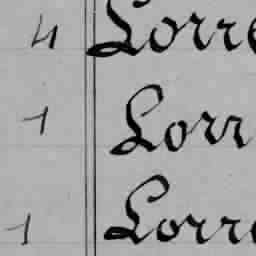 4 Lorre
1 Lorr
1 Lorre